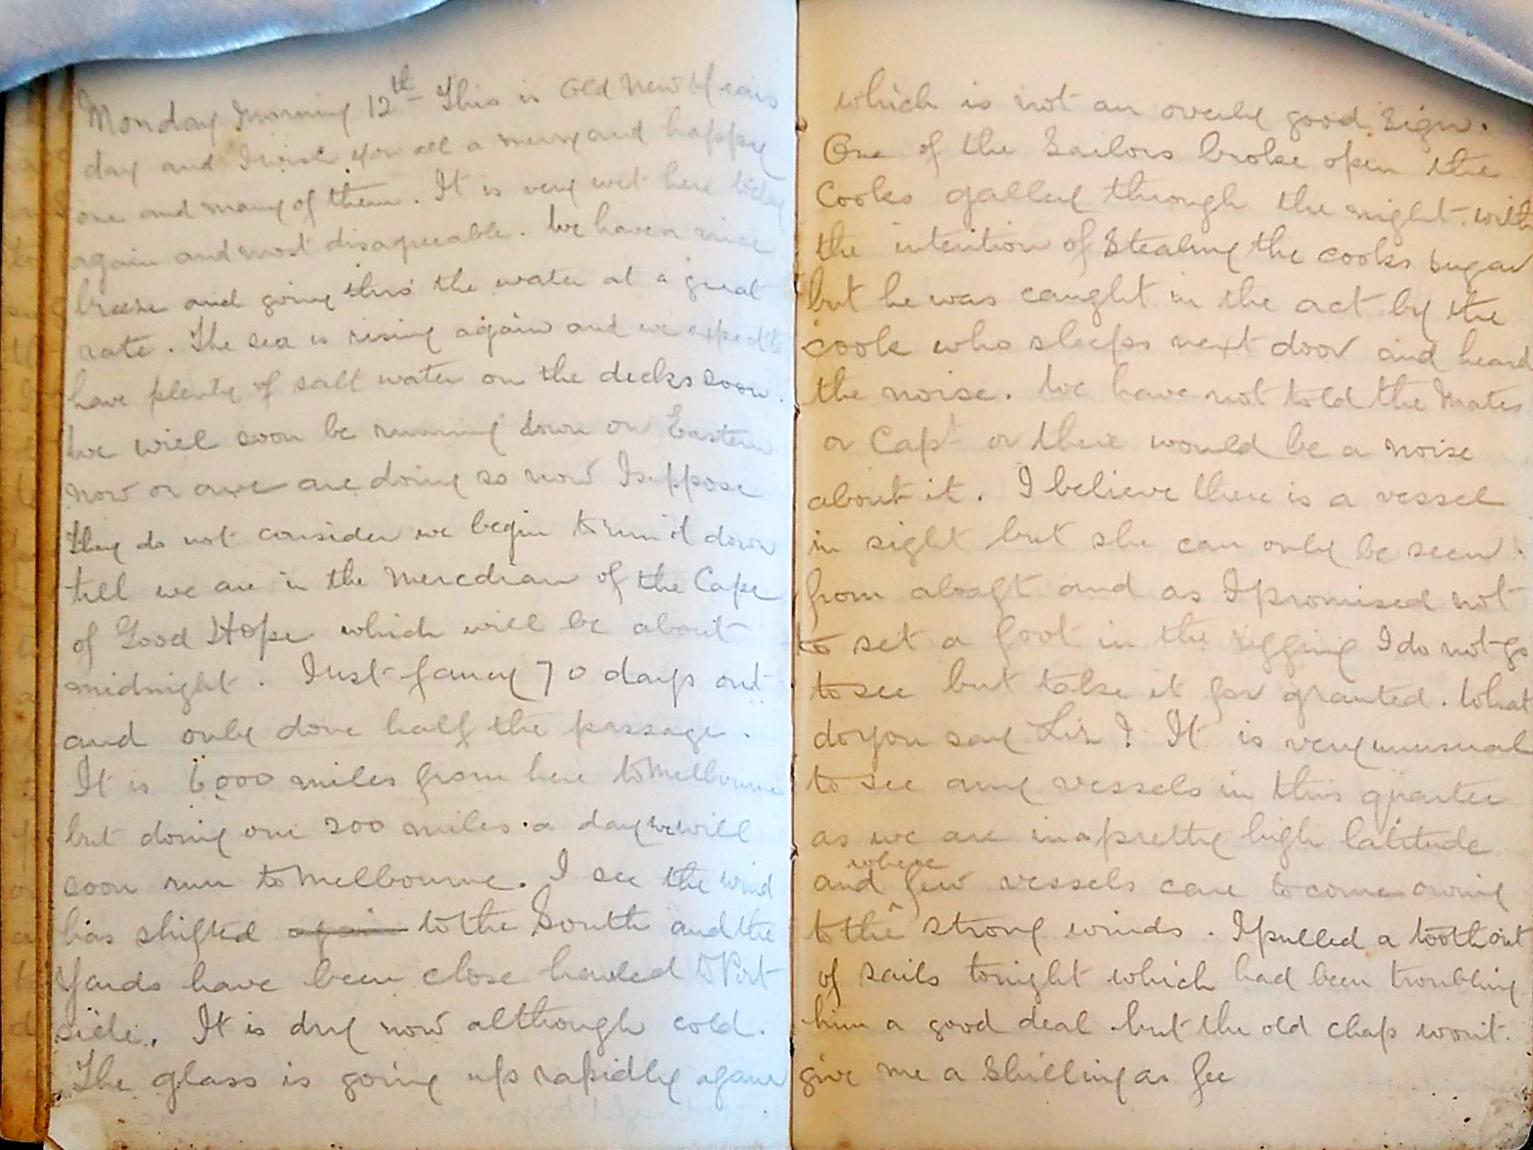 Monday morning 12th This is Old New Years
day and I wish you all a merry and happy
one and many of them. It is very wet here today
again and most disagreeable. We have a nice
breeze and going thro' the water at a great
rate. The sea is rising again and we expect to
have plenty of salt water on the decks soon.
We will soon be running down our Eastern
now or are doing so now I suppose
they do not consider we begin to run it down
till we are in the Meredian of the Cape
of Good Hope which will be about
midnight. Just fancy 70 days out
and only done half the passage.
It is 6000 miles from here to Melbourne
but doing our 200 miles a day we will
soon run to Melbourne. I see the wind
has shifted again to the South and the
Yards have been close hauled to Port
side. It is dry now although cold.
The glass is going up rapidly again
which is not an overly good sign.
One of the Sailors broke open the
Cooks galley through the night with
the intention of Stealing the cooks sugar
but he was caught in the act by the
cook who sleeps next door and heard
the noise. We have not told the Mates
or Capt or there would be a noise
about it. I believe there is a vessel
in sight but she can only be seen
from aloaft and as I promised not
to set a foot in the rigging I do not go
to see but take it for granted. What
do you say Liz? It is very unusual
to see any vessels in this quarter
as we are in a pretty high latitude
and where few vessels care to come owing
to the strong winds. I pulled a tooth out
of sails tonight which had been troubling
him a good deal but the old chap wont
give me a Shilling as fee